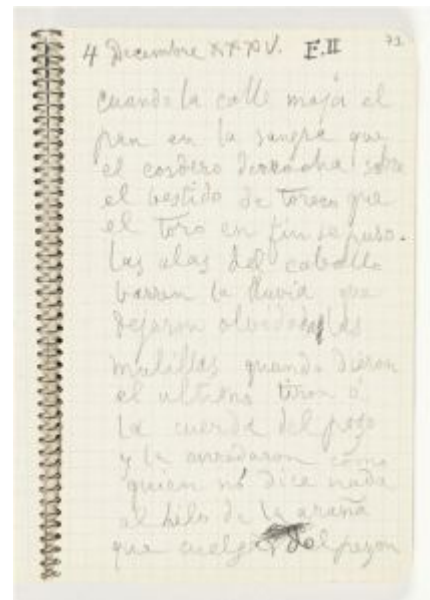 4 Decembre XXXV. E.II 71
cuando la calle moja el
pan en la sangre que
el cordero derrocha sobre
el vestido de torero que
el toro en fin se puso.
las alas del caballo
barren la lluvia que
dejaron olvidada las
mulillas quando dieron
el ultimo tiron á
la cuerda del pozo
y la anrredaron como
quien no dice nada
al hilo de la araña
que cuelga del pezon